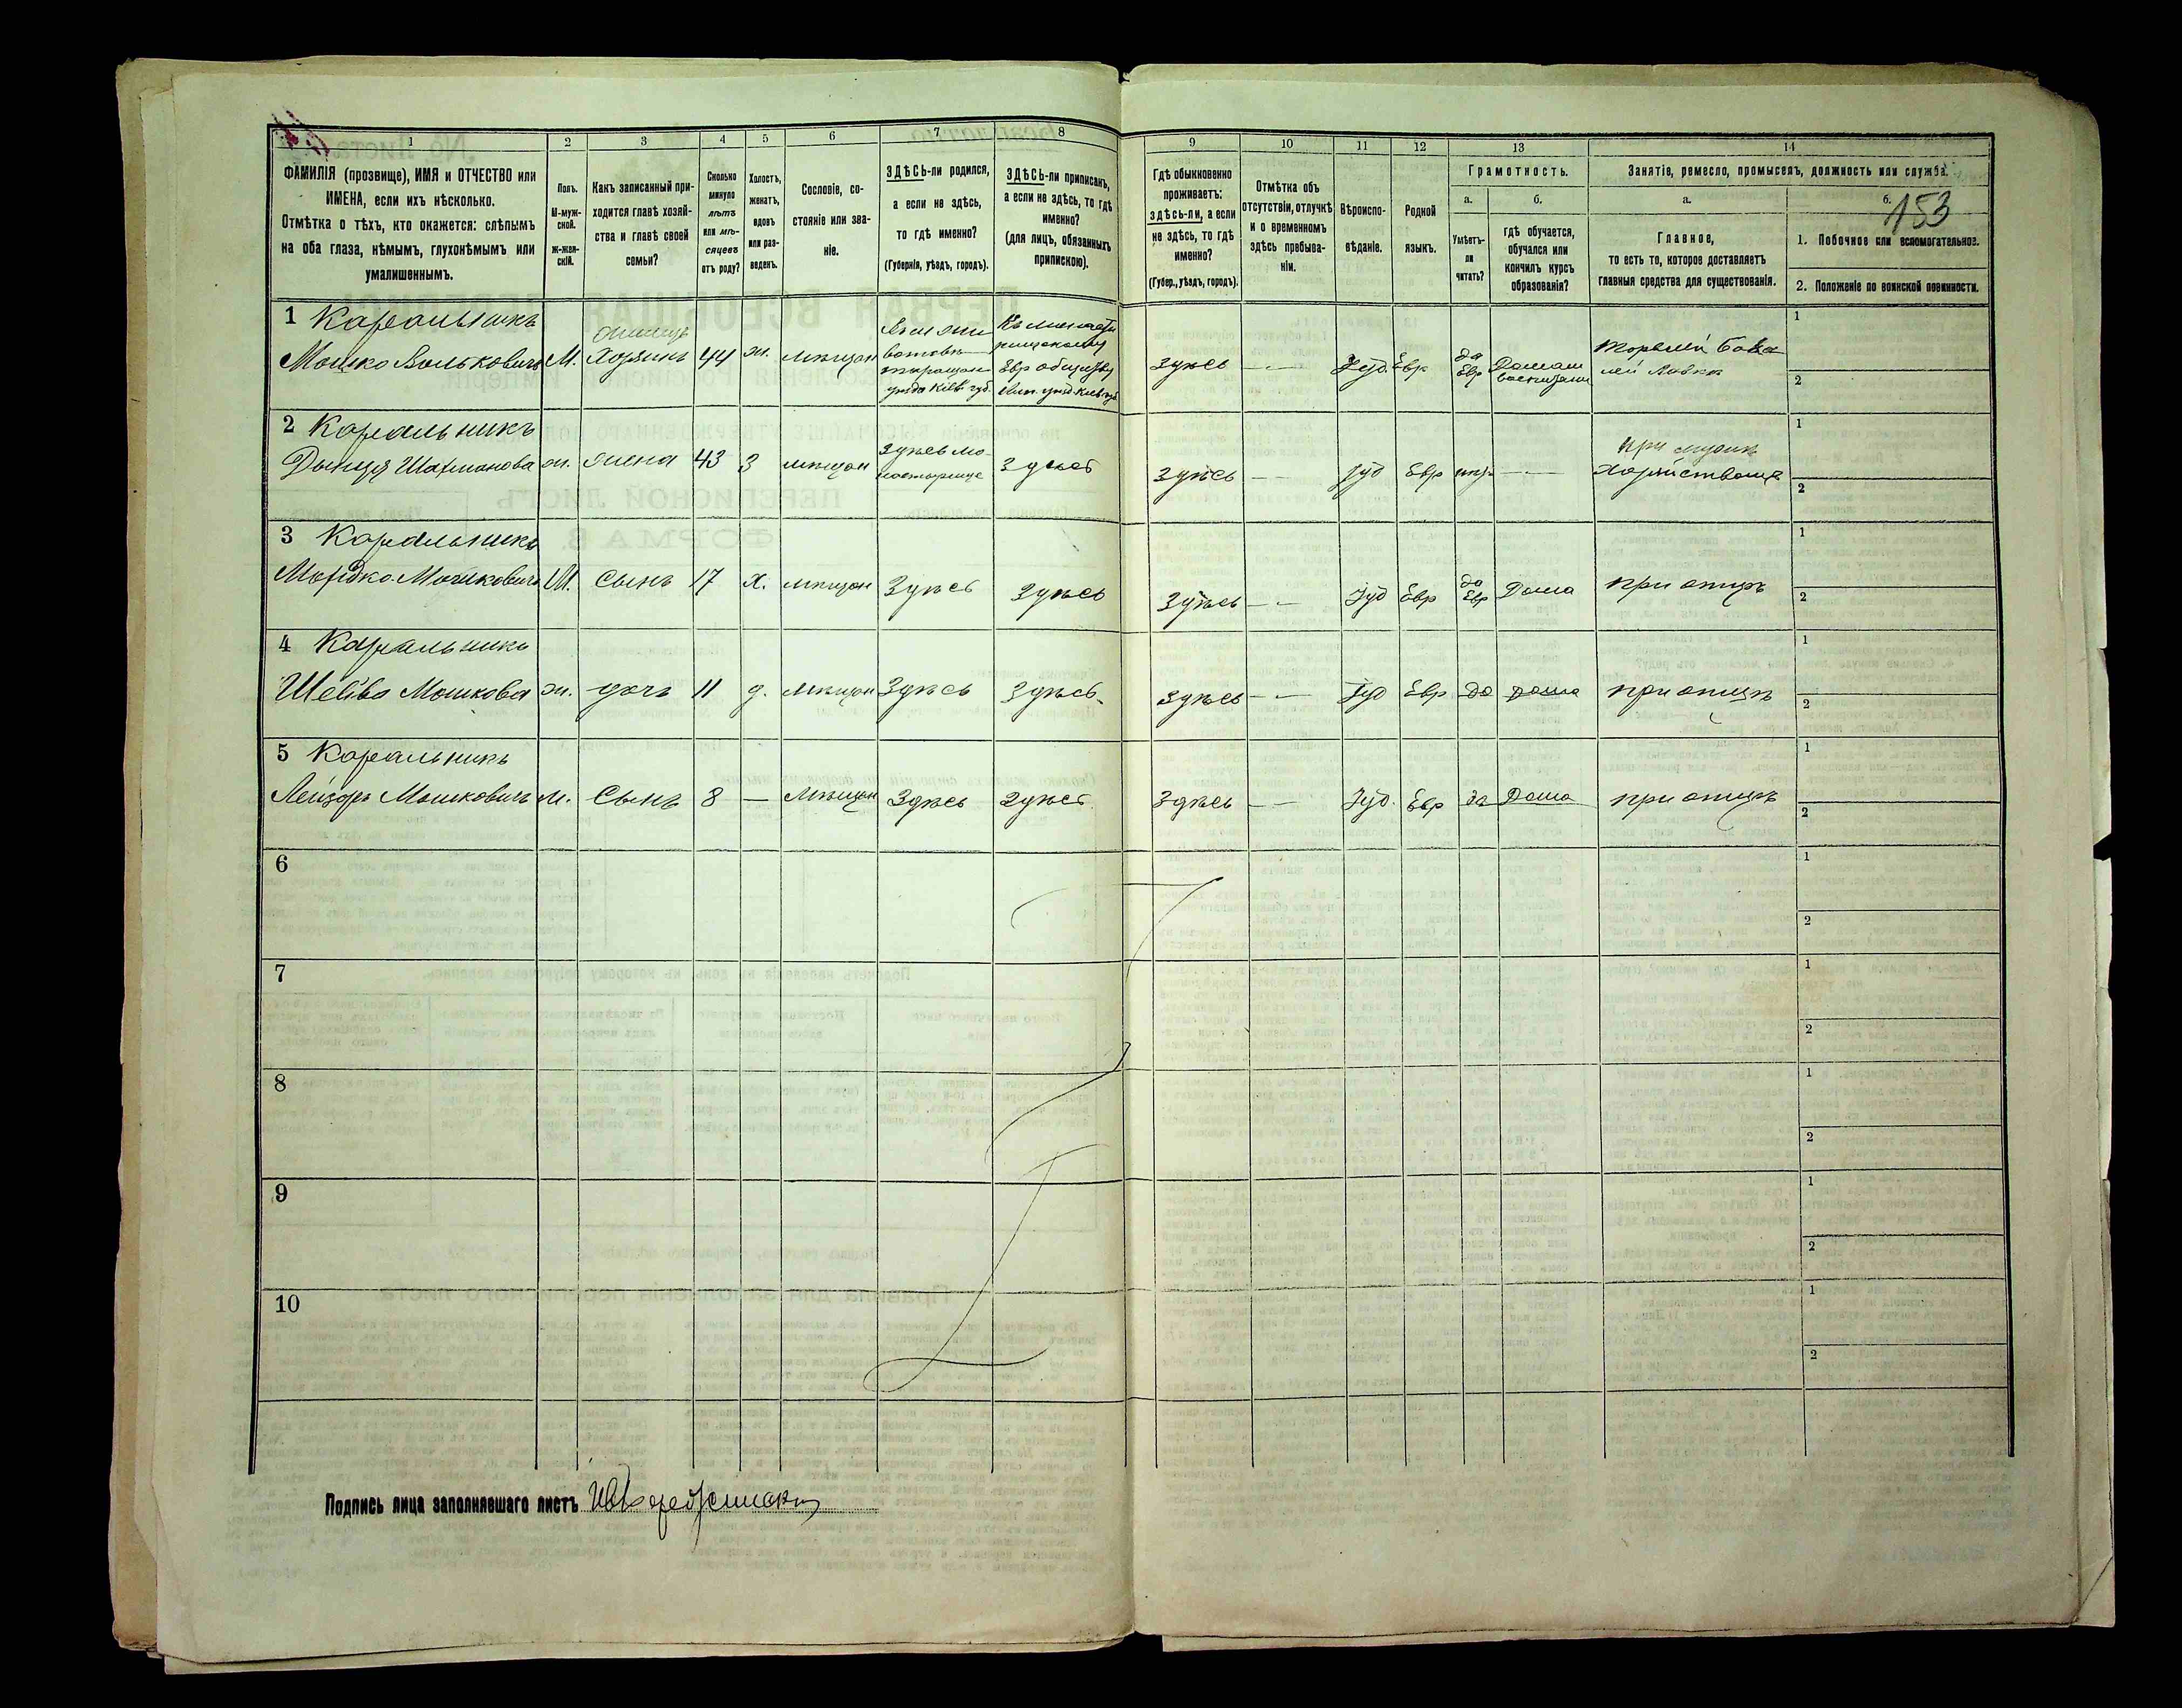 1 2 3 4 5 6 7 8 9 10 11 12 13 14
ФАМИЛІЯ (прозвище), ИМЯ и ОТЧЕСТВО или
ИМЕНА, если ихъ нѣсколько.
Отмѣтка о тѣхъ, кто окажется: слѣпымъ
на оба глаза, нѣмымъ, глухонѣмымъ или
умалишеннымъ.
Полъ.
М-муж-
ской.
Ж-жен-
скій.
Какъ записанный при-
ходится главѣ хозяй-
ства и главѣ своей
семьи?
Сколько
минуло
лѣтъ
или мѣ-
сяцевъ
отъ роду?
Холостъ,
женатъ,
вдовъ
или раз-
веденъ.
Сословіе, со-
стояніе или зва-
ніе.
ЗДѢСЬ-ли родился,
а если не здѣсь,
то гдѣ именно?
(Губернія, уѣздъ, городъ).
ЗДѢСЬ-ли приписанъ,
а если не здѣсь, то гдѣ
именно?
(для лицъ, обязанныхъ
припискою).
Гдѣ обыкновенно
проживаетъ:
здѣсь-ли, а если
не здѣсь, то гдѣ
именно?
(Губер., уѣздъ, городъ).
Отмѣтка объ
отсутствіи, отлучкѣ
и о временномъ
здѣсь пребыва-
ніи.
Вѣроиспо-
вѣданіе.
Родной
языкъ.
Грамотность.
а.
Умѣетъ-
ли
читать?
б.
гдѣ обучается,
обучался или
кончилъ курсъ
образованія?
Занятіе, ремесло, промыселъ, должность или служба.
а.
Главное,
то есть то, которое доставляетъ
главныя средства для существованія.
б.
153
1. Побочное или вспомогательное.
2. Положеніе по воинской повинности.
1 Каральникъ
Мошко Вольковичъ М. Хозяинъ 44 ж. мѣщан
уѣзда Кіев. губ.
Евр обществу
здѣсь Іуд. Евр да Евр Домаш
лей Лавки
1
2
2 Каральникъ
ж. жена 43 З мѣщан здѣсь Мо-
настырище здѣсь здѣсь Іуд Евр
при мужѣ
1
2
3 Каральникъ
Мошковичъ М. сынъ 17 х. мѣщан Здѣсь здѣсь здѣсь Іуд Евр да Евр Дома при отцѣ
1
2
4 Каральникъ
Шейва Мошкова ж. дочь 11 д. мѣщан Здѣсь здѣсь здѣсь Іуд Евр да дома при отцѣ
1
2
5 Каральникъ
Лейзоръ Мошковичъ М. сынъ 8 — мѣщан Здѣсь здѣсь здѣсь Іуд. Евр да Дома при отцѣ
1
2
6
1
2
7
1
2
8
1
2
9
1
2
10
1
2
Подпись лица заполнявшаго листъ